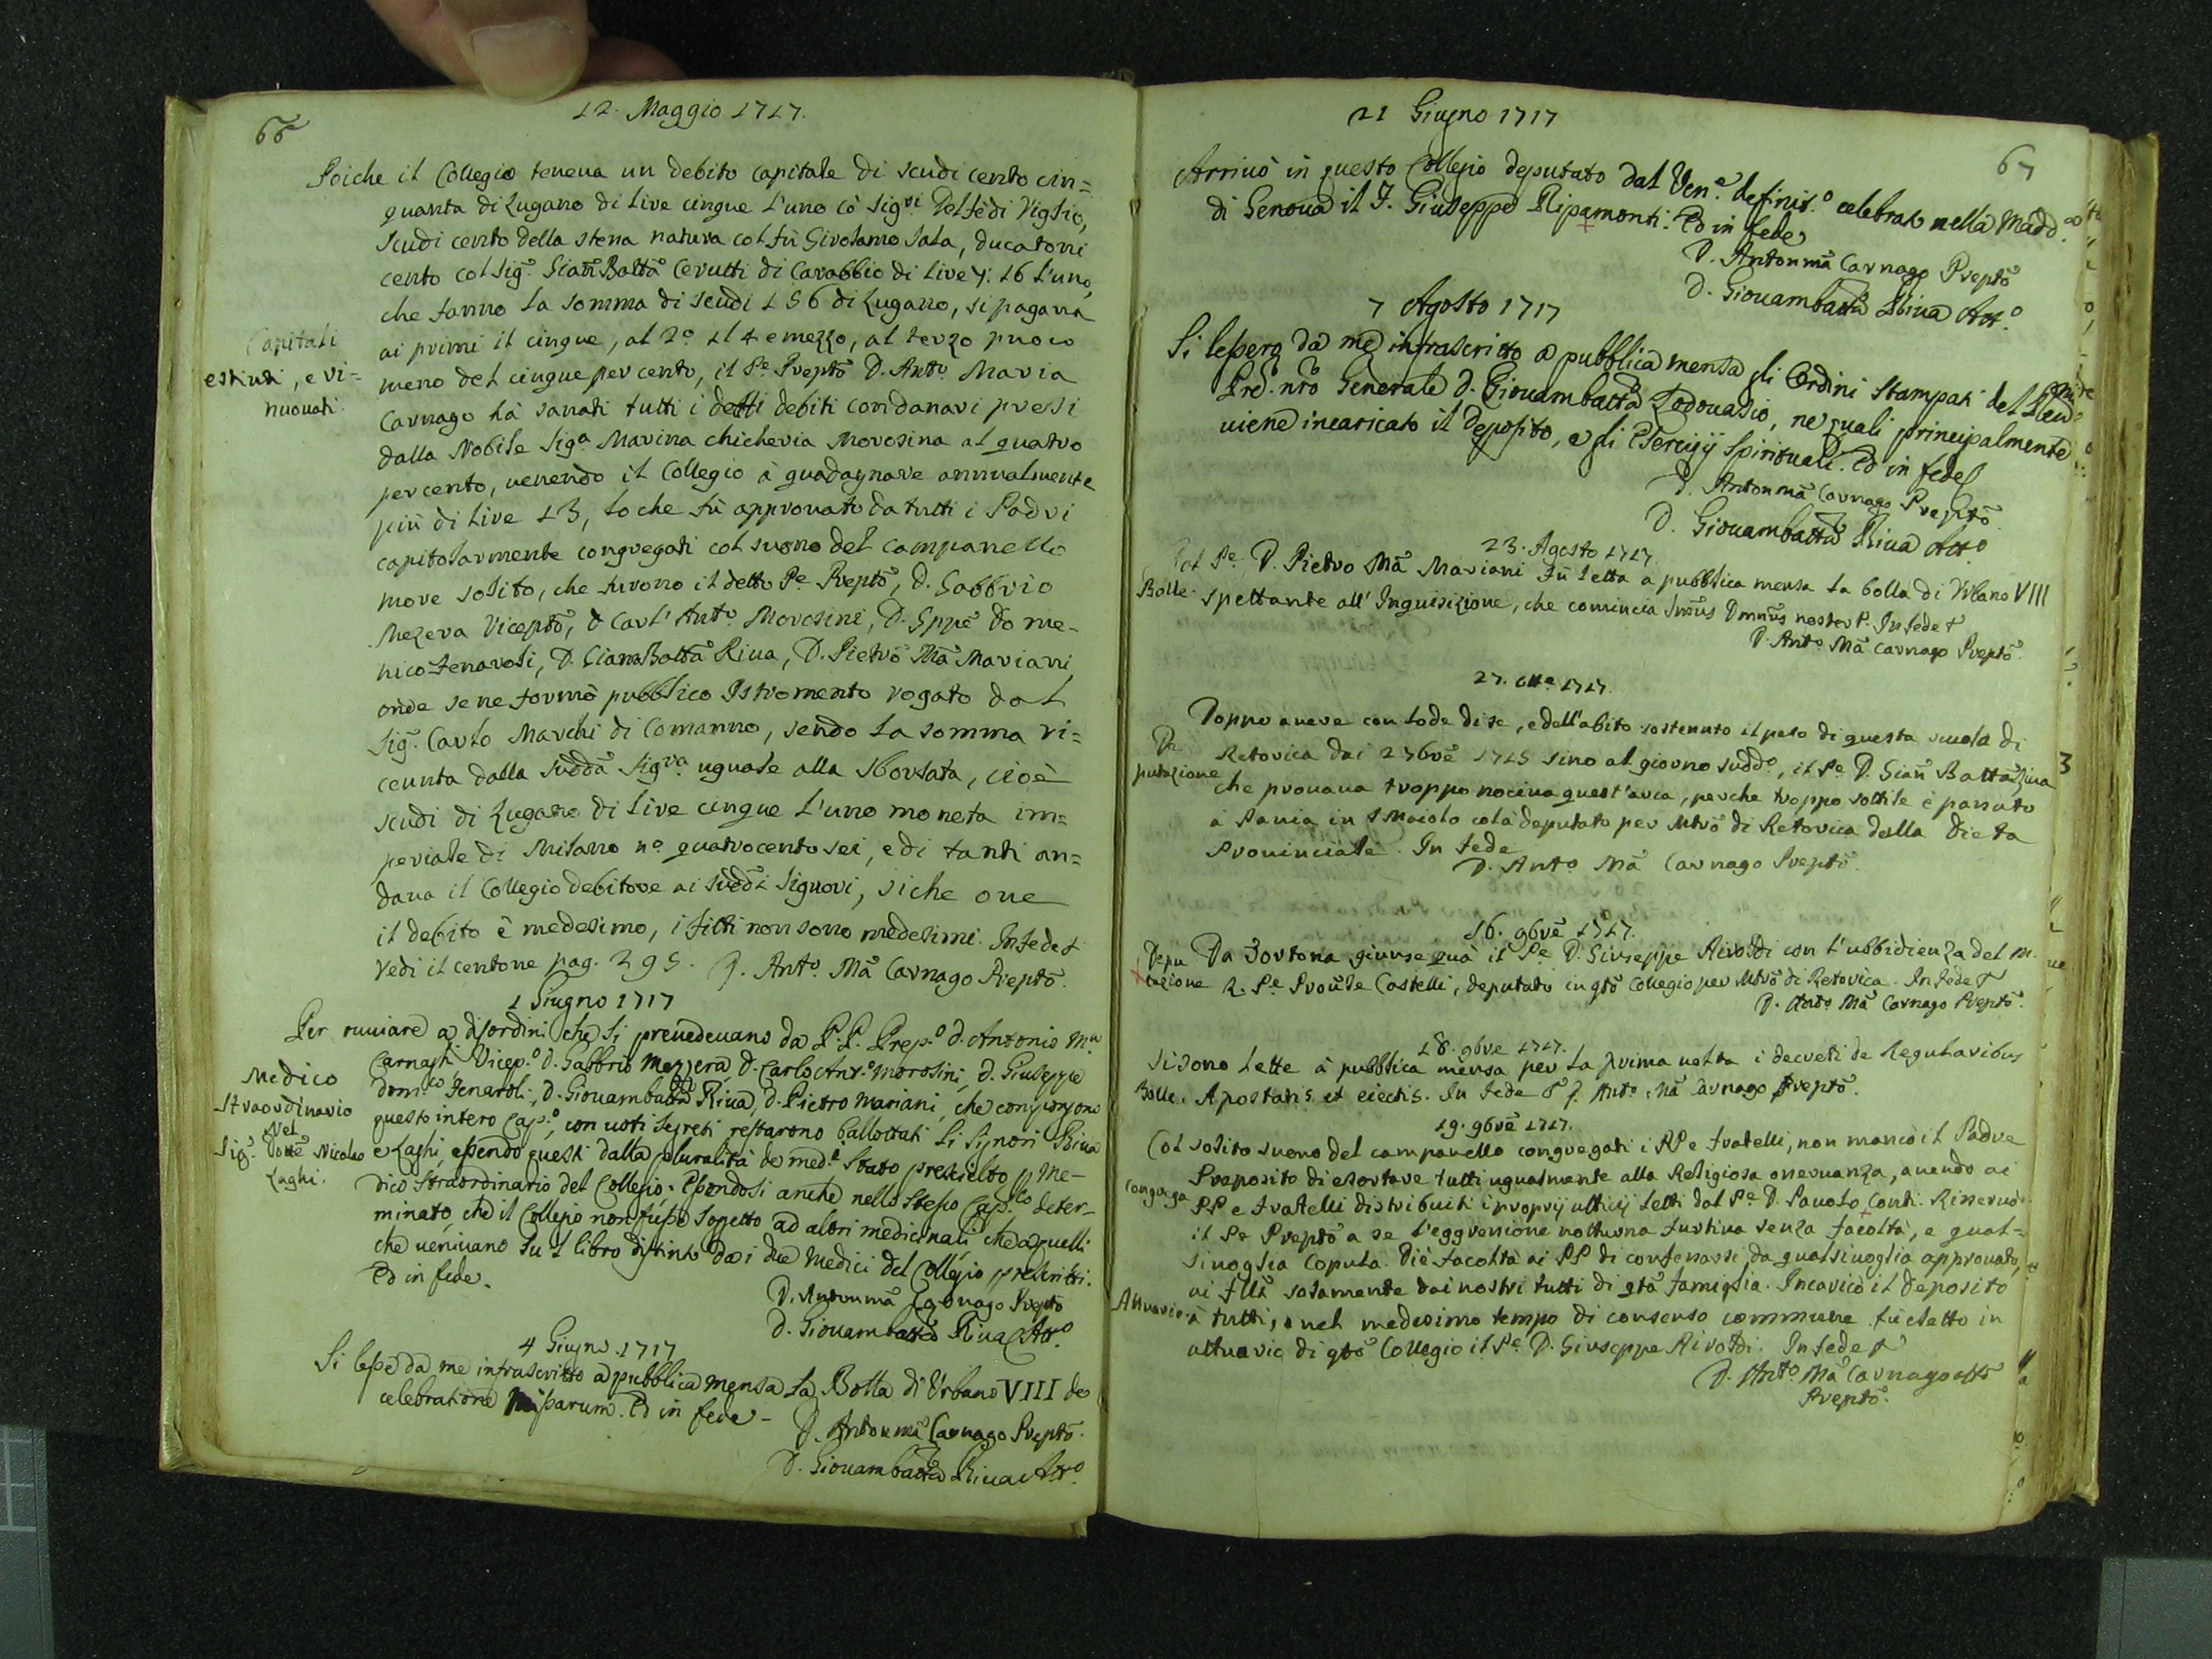 66
12. Maggio 1717.
Poiche il Collegio teneva un debito capitale di scudi cento cin=
quanta di Lugano di lire cinque l'uno cò Sigri Delfè di Viglio,
scudi cento della stessa natura col fù Girolamo Sala, ducatoni
cento col Sigr. Gian Batta Cerutti di Carabbio di lire 7: 16 l'uno,
che fanno la somma di scudi 456 di Lugano, si pagava
Capitali
estinti, e ri=
nuouati.
ai primi il cinque, al 2o il 4 e mezzo, al terzo puoco
meno del cinque per cento, il Pe Prepto D. Anto Maria
Carnago hà sanati tutti i detti debiti con danari presi
dalla Nobile Siga Marina chicheria Morosina al quatro
per cento, uenendo il Collegio à guadagnare annualmente
più di lire 13, lo che fù approuato da tutti i Padri
capitolarmente congregati col suono del campanello
more solito, che furono il detto Pe Prepto, D. Gabbrio
Mezera Vicepto, D Carl' Anto Morosini, D. Gppe Dome-
nico Fenaroli, D. Gian Batta Riua, D. Pietro Ma Mariani,
onde se ne formò pubblico Istromento rogato dal
Sigr. Carlo Marchi di Comanno, sendo la somma ri=
ceuuta dalla sudda Sigra uguale alla sborsata, cioè
scudi di Lugano di lire cinque l'uno moneta im=
periale di Milano no quatrocento sei, e di tanti an=
daua il Collegio debitore ai suddi Signori, siche oue
il debito è medesimo, i fitti non sono medesimi. In fede &
Vedi il centone pag. 295. D. Anto. Ma Carnago Prepto.
1 Giugno 1717
Per ouuiare a disordini che si preuedeuano da P.P. Prep.o D. Antonio Ma
Carnaghi Vicep.o D. Gabbrio Mezzera D. Carlo Ant.o Morosini, D. Giuseppe
Medico
straordinario
nel
Sigr. Dotte Nicolao
Laghi.
Dom.co Fenaroli, D. Giouambatta Riua, D. Pietro Mariani, che compongono
questo intero Cap.o, con uoti segreti restarono ballottati li Signori Riua
e Laghi, essendo questi dalla pluralità de med.i stato prescielto p Me-
dico straordinario del Collegio. Essendosi anche nello stesso Cap.lo deter-
minato, che il Collegio non fusse soggetto ad altri medicinali, che a quelli
che ueniuano su 'l libro distinto da i due Medici del Collegio prescritti.
Ed in fede.
D. Antonma Carnago Prepto
D. Giouambatta Riua Att.o
4 Giugno 1717
Si lesse da me infrascritto a pubblica mensa la Bolla di Urbano VIII de
celebratione Missarum. Ed in fede -
D. Antonma Carnago Prepto.
D. Giouambatta Riua Att.o
67
21 Giugno 1717
Arriuò in questo Collegio deputato dal Ven.e definit.o celebrato nella Madd.a
di Genoua il F. Giuseppe Ripamonti. Ed in fede
D. Antonma Carnago Prepto
D. Giouambatta Riua Att.o
7 Agosto 1717
Si lessero da me infrascritto a pubblica mensa gli Ordini stampati del
Pre. nro Generale D. Giouambatta Lodouasio, ne quali principalmente
uiene incaricato il Deposito, e gli Esercizij Spirituali. Ed in fede
D. Antonma Carnago Prepto.
D. Giouambatta Riua Att.o
23. Agosto 1717.
Dal Pe. D. Pietro Ma Mariani fù letta a pubblica mensa la bolla di Vrbano VIII
Bolle. spettante all' Inquisizione, che comincia Smus Dmnus noster &. In fede &
D. Anto Ma Carnago Prepto.
27. Otte 1717.
Doppo auere con lode di se, e dell'abito sostenuto il peso di questa scuola di
De
putazione
Retorica dai 2 9bre 1715 sino al giorno suddo, il Pe D. Gian Batta Riua
che prouaua troppo nociua quest'aria, perche troppo sottile è passato
à Pauia in S Maiolo colà deputato per Mtro di Retorica dalla Dieta
Prouinciale. In fede
D. Anto Ma Carnago Prepto.
16. 9bre 1717.
Depu
tazione
Da Tortona giunse quà il Pe D. Giuseppe Riualdi con l'ubbidienza del M.
R. Pe Prouile Castelli, deputato in qto Collegio per Mtro di Retorica. In fede &
D. Anto Ma Carnago Prepto.
18. 9bre 1717.
Si sono lette à pubblica mensa per la prima uolta i decreti de Regularibus
Bolle. Apostatis et eiectis. In fede & D. Anto. Ma Carnago Prepto.
19. 9bre 1717.
Col solito suono del campanello congregati i PP e fratelli, non mancò il Padre
Preposito di esortare tutti ugualmente alla Religiosa osseruanza, auendo ai
Congrega
PP e fratelli distribuiti i proprij ufficij letti dal Pe D. Pauolo Conti. Riseruò
il Pe Prepto a se l'eggressione notturna furtiua senza facoltà, e qual=
siuoglia copula. Diè facoltà ai PP di confessarsi da qualsiuoglia approuato,
ai flli solamente dai nostri tutti di qta famiglia. Incaricò il Deposito
Attuario.
à tutti, e nel medesimo tempo di consenso commune fù eletto in
attuario di qto Collegio il Pe D. Giuseppe Riualdi. In fede &
D. Anto Ma Carnago
Prepto.